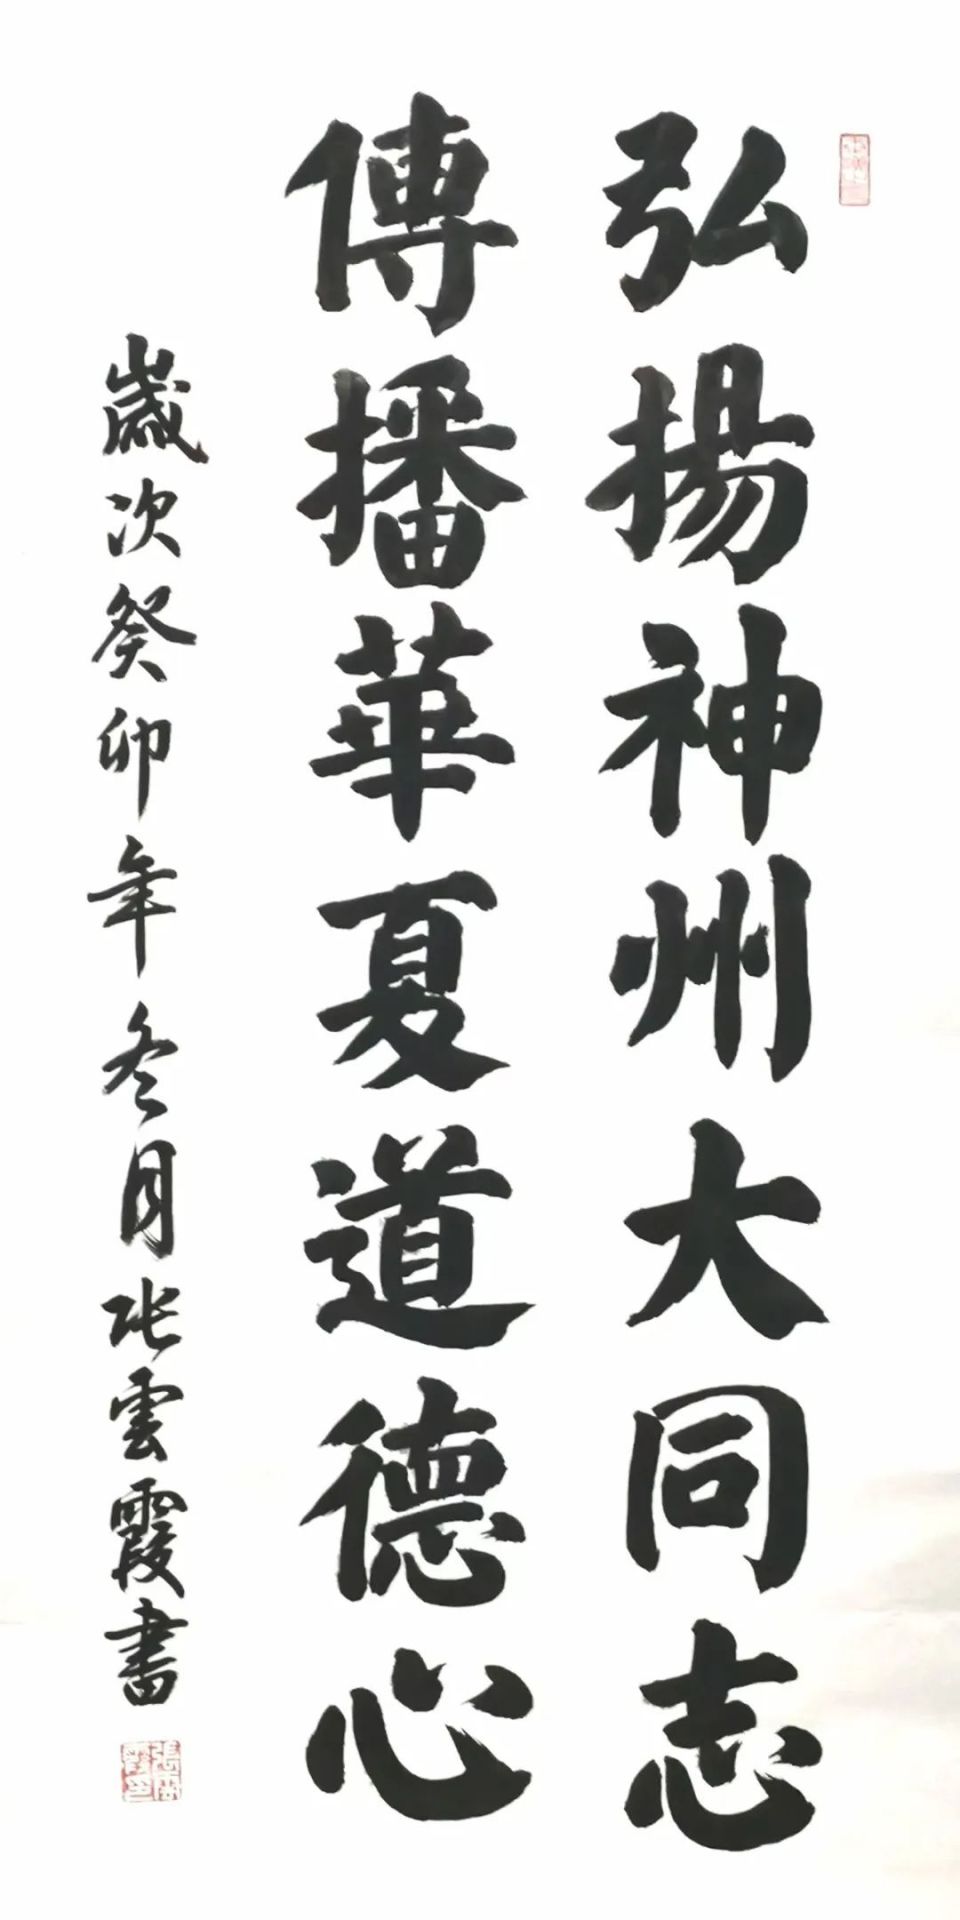 弘揚神州大同志
傳播華夏道德心
歲次癸卯年冬月张雲霞書
張雲霞印